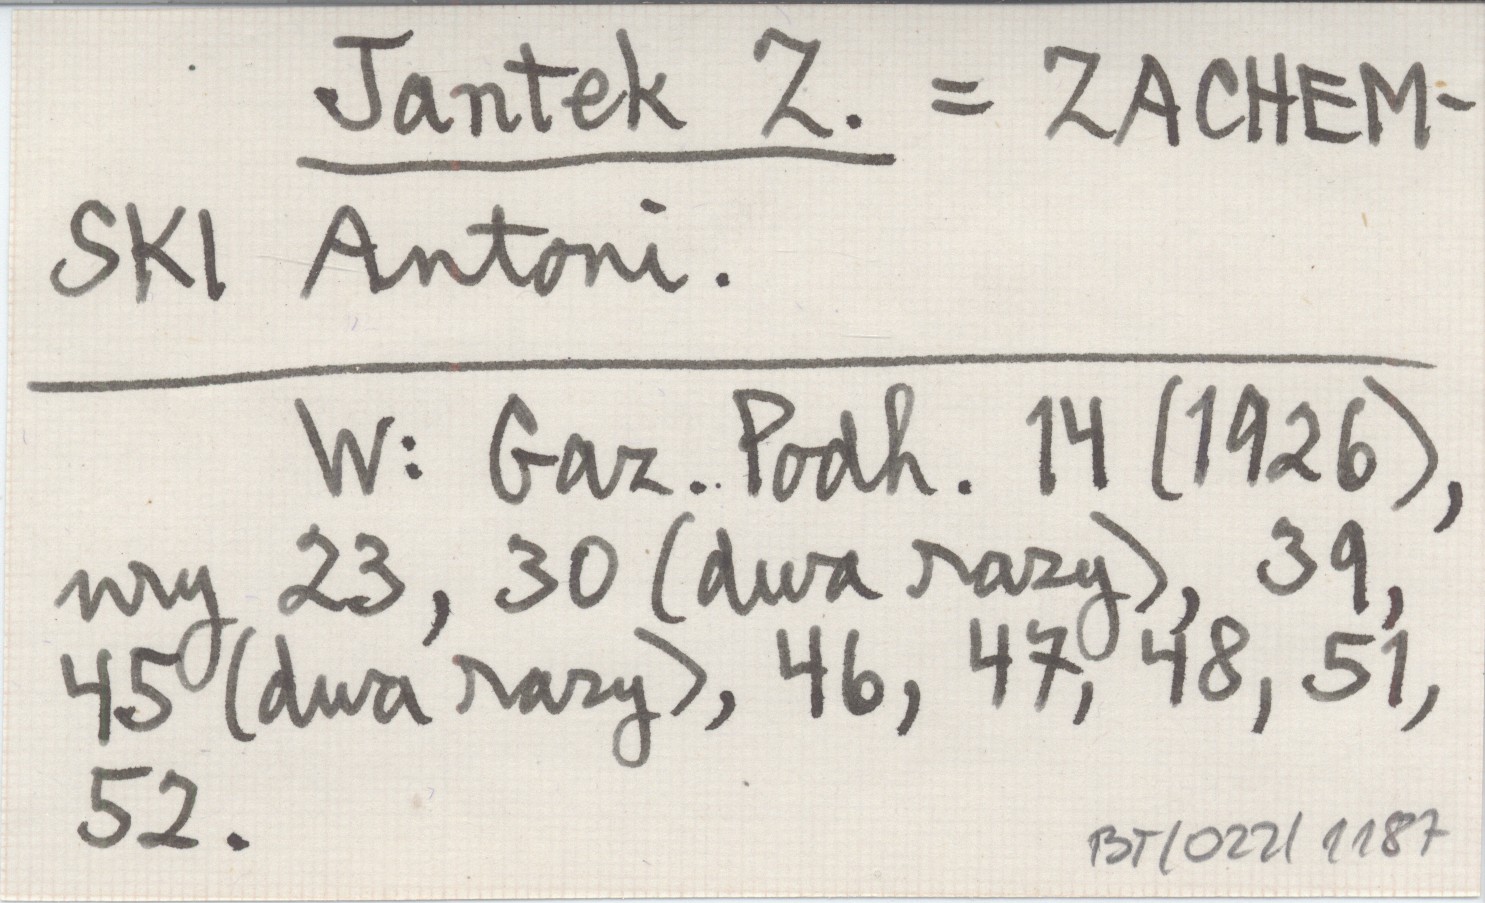 Jantek Z. = ZACHEM-
SKI Antoni.
W: Gaz. Podh. 14 (1926),
nry 23, 30 (dwa razy), 39,
45 (dwa razy), 46, 47, 48, 51,
52.
BT/022/1187